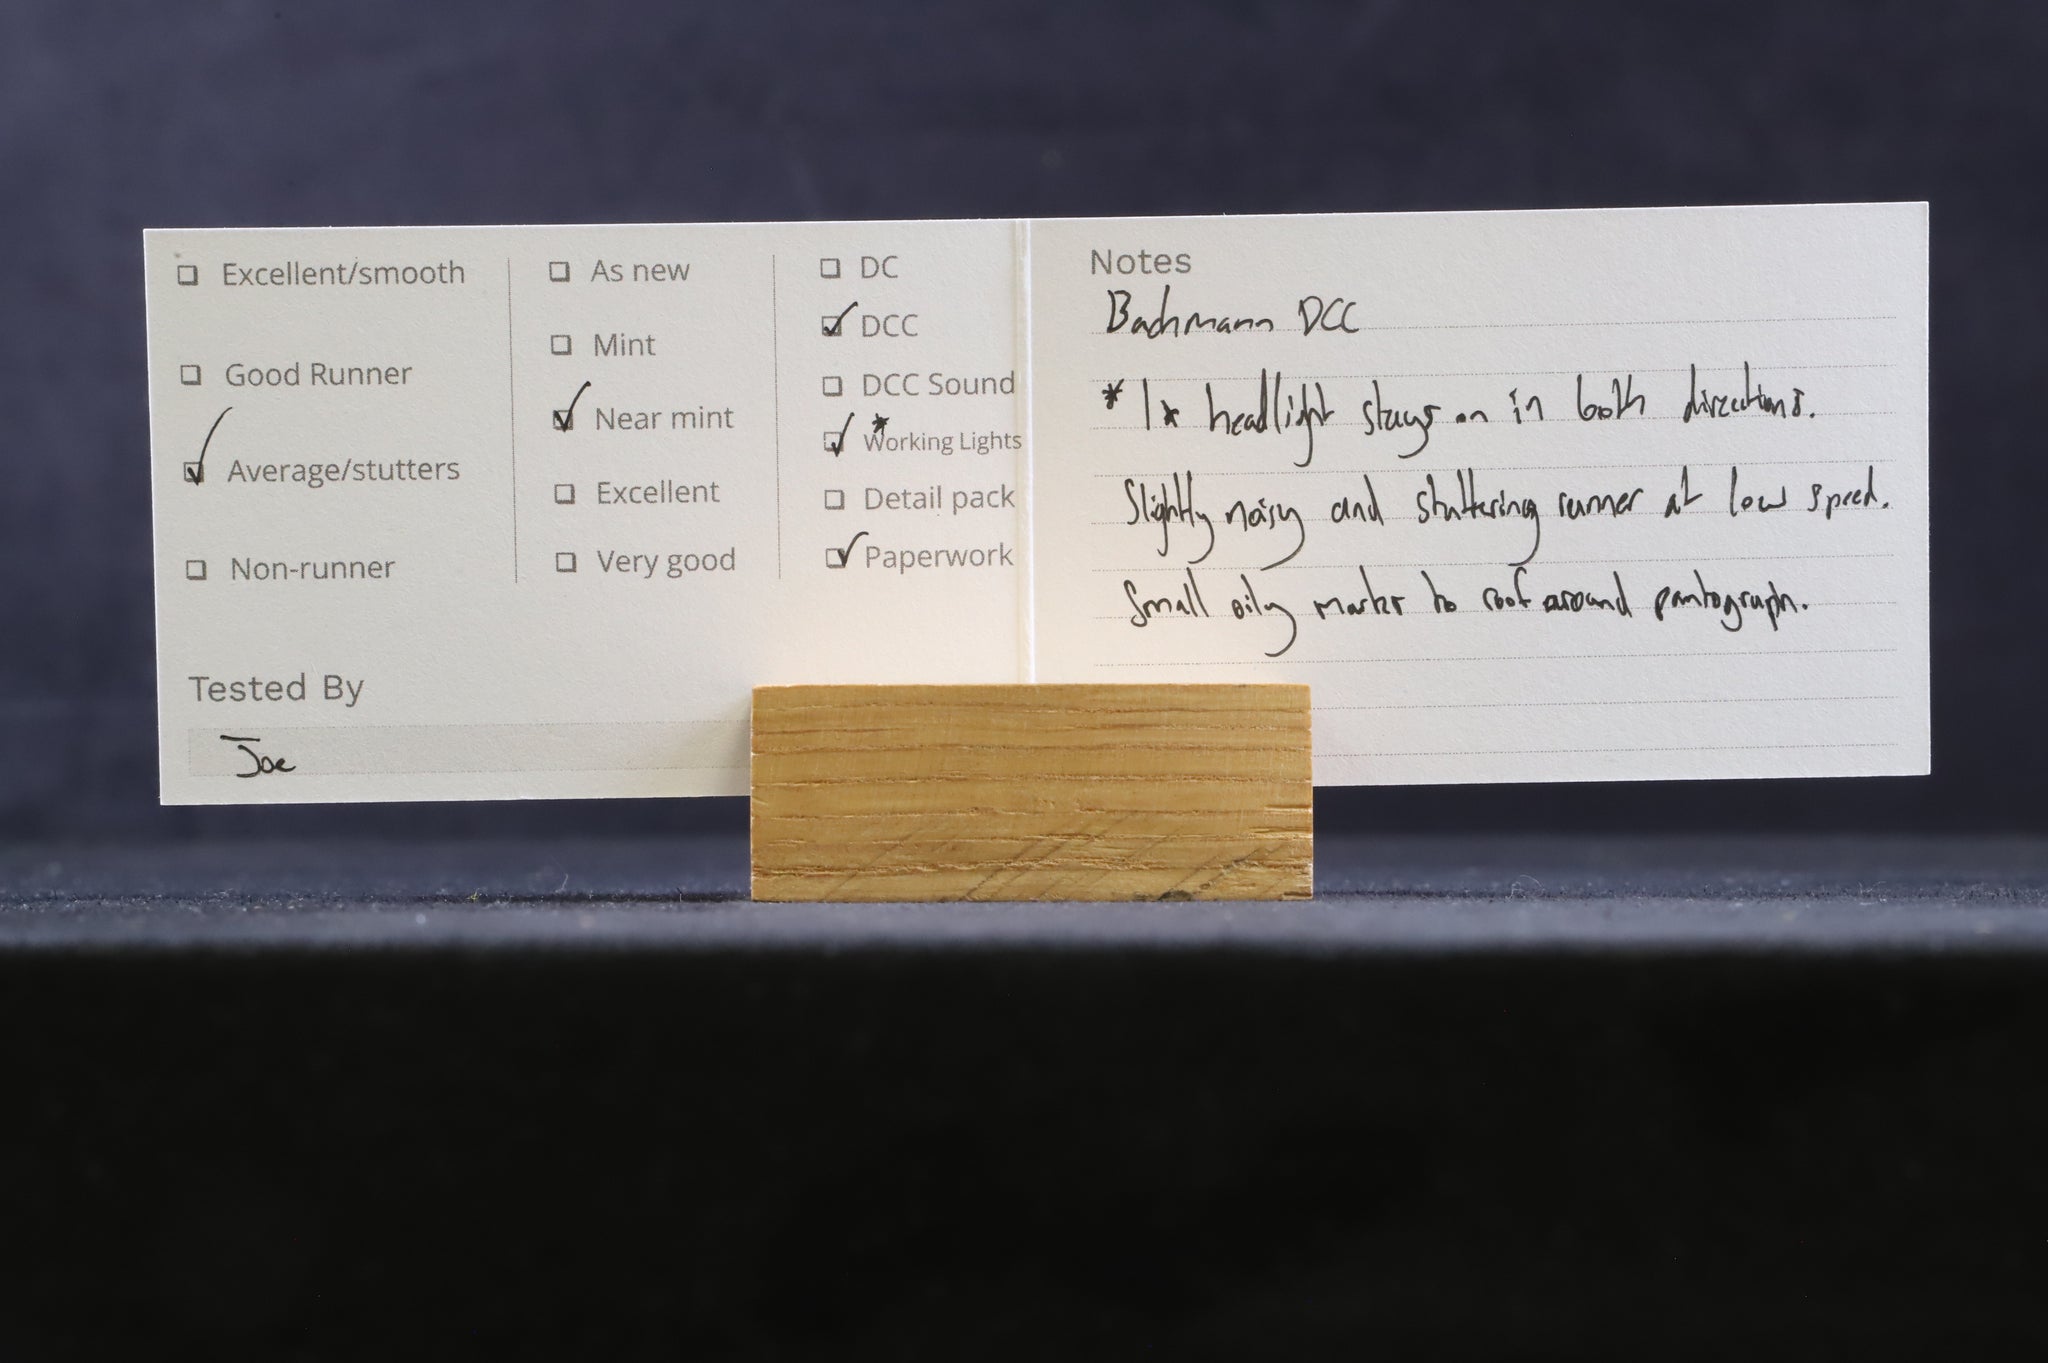 ☐ Excellent/smooth
☐ Good Runner
☑ Average/stutters
☐ Non-runner
☐ As new
☐ Mint
☑ Near mint
☐ Excellent
☐ Very good
☐ DC
☑ DCC
☐ DCC Sound
☑ * Working Lights
☐ Detail pack
☑ Paperwork
Tested By
Joe
Notes
Bachmann DCC
* 1x headlight stays on in both directions.
Slightly noisy and stuttering runner at low speed.
Small oily marks to roof around pantograph.